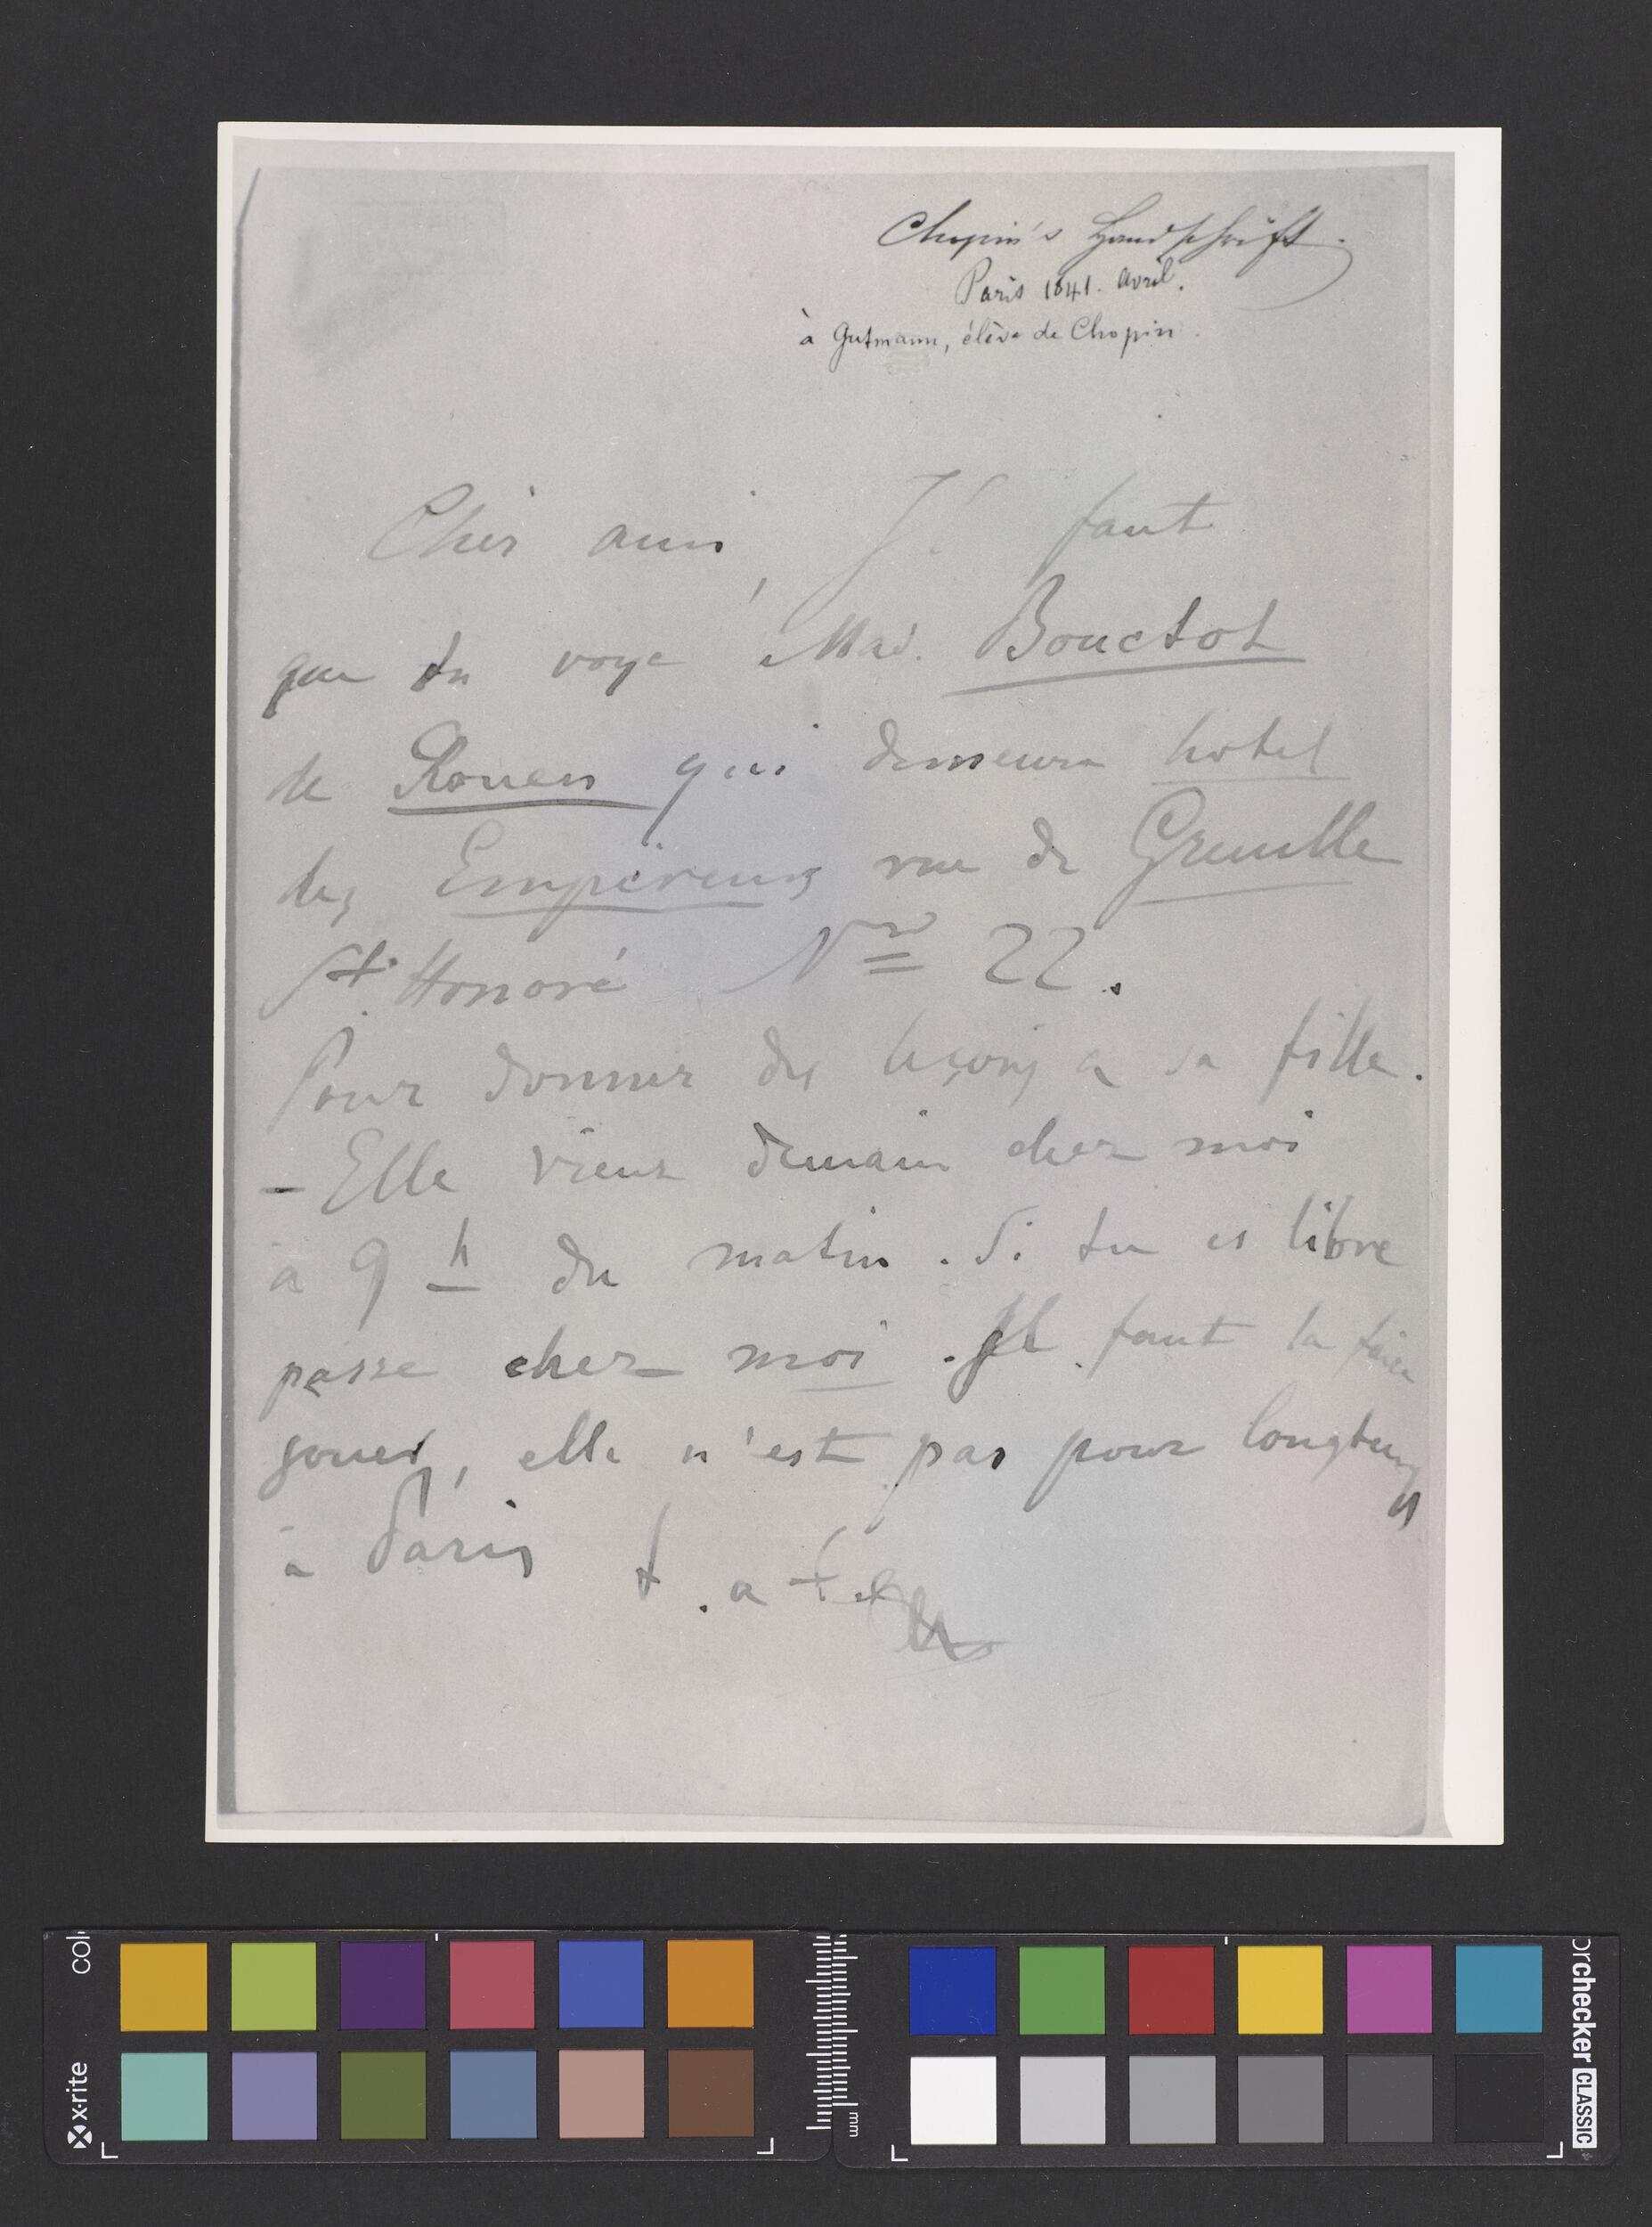 Chopin's Handschrift.
Paris 1841. avril.
à Gutmann, élève de Chopin.
Cher ami, Il faut
que tu voye Mad. Bouctot
de Rouen qui demeure hotel
des Empereurs rue de Grenelle
St. Honoré Nro 22.
Pour donner des leçons a sa fille.
- Elle viens demain chez moi
à 9 h du matin. Si tu es libre
passe chez moi. Il faut la faire
jouer, elle n'est pas pour longtems
à Paris
t. a t.
x-rite
colorchecker CLASSIC
mm